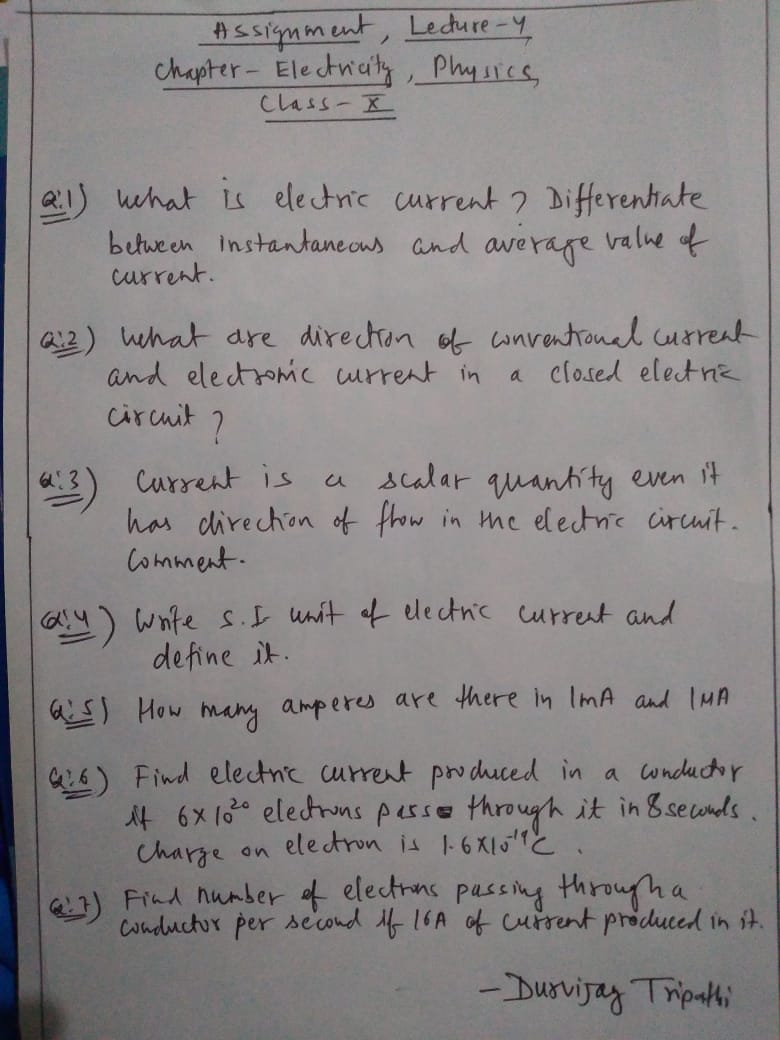 Assignment, Lecture-4
Chapter- Electricity, Physics
Class- X
Q:1) What is electric current? Differentiate
between instantaneous and average value of
current.
Q:2) What are direction of conventional current
and electronic current in a closed electric
circuit?
Q:3) Current is a scalar quantity even it
has direction of flow in the electric circuit.
Comment.
Q:4) Write S.I unit of electric current and
define it.
Q:5) How many amperes are there in 1mA and 1MA
Q:6) Find electric current produced in a conductor
if 6×10²⁰ electrons pass through it in 8 seconds.
Charge on electron is 1.6×10⁻¹⁹C.
Q:7) Find number of electrons passing through a
conductor per second if 16A of current produced in it.
- Durvijay Tripathi